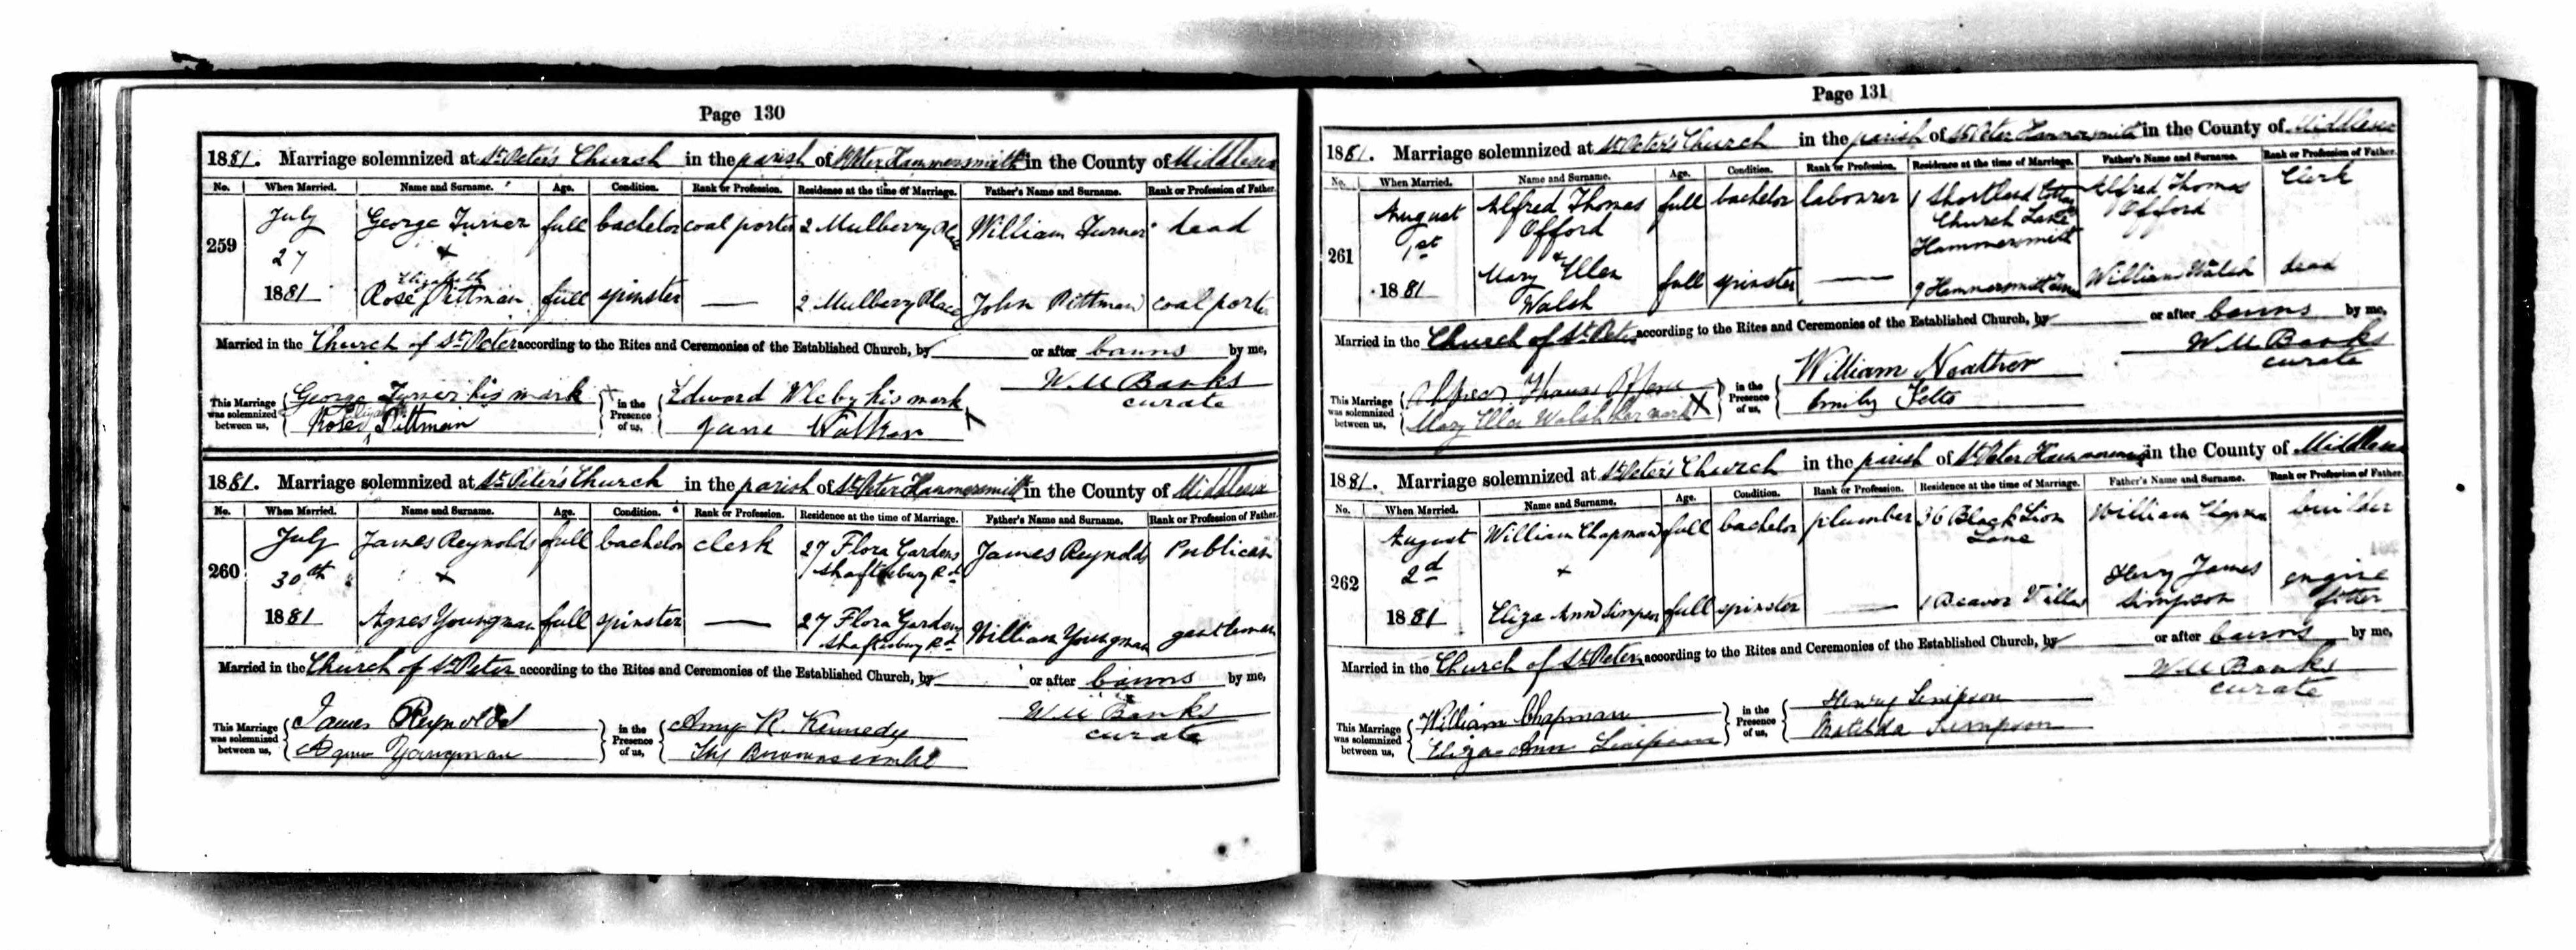 Page 130
1881. Marriage solemnized at St. Peter's Church in the parish of St Peter Hammersmith in the County of Middlesex
No. When Married. Name and Surname. Age. Condition. Rank or Profession. Residence at the time of Marriage. Father's Name and Surname. Rank or Profession of Father.
259 July 27 1881
George Turner full bachelor coal porter 2 Mulberry Place William Turner dead
+
Elizabeth
Rose Pittman full spinster — 2 Mulberry Place John Pittman coal porter
Married in the Church of St. Peter according to the Rites and Ceremonies of the Established Church, by or after banns by me,
W M Banks
curate
This Marriage was solemnized between us,
George Turner his mark x
Rose Eliza Pittman
in the Presence of us,
Edward his mark x
Jane
1881. Marriage solemnized at St. Peter's Church in the parish of St. Peter Hammersmith in the County of Middlesex
No. When Married. Name and Surname. Age. Condition. Rank or Profession. Residence at the time of Marriage. Father's Name and Surname. Rank or Profession of Father.
260 July 30th 1881
James Reynolds full bachelor clerk 27 Flora Gardens Shaftesbury Rd James Reynolds Publican
+
Agnes Youngman full spinster — 27 Flora Gardens Shaftesbury Rd William Youngman gentleman
Married in the Church of St. Peter according to the Rites and Ceremonies of the Established Church, by or after banns by me,
W M Banks
curate
This Marriage was solemnized between us,
James Reynolds
Agnes Youngman
in the Presence of us,
Amy R. Kennedy
Brownscombe
Page 131
1881. Marriage solemnized at St. Peter's Church in the parish of St. Peter Hammersmith in the County of Middlesex
No. When Married. Name and Surname. Age. Condition. Rank or Profession. Residence at the time of Marriage. Father's Name and Surname. Rank or Profession of Father.
261 August 1st 1881
Alfred Thomas Offord full bachelor labourer 1 Church Lane Hammersmith Alfred Thomas Offord Clerk
+
Mary Ellen Walsh full spinster — 9 Hammersmith William Walsh dead
Married in the Church of St. Peter according to the Rites and Ceremonies of the Established Church, by or after banns by me,
W M Banks
curate
This Marriage was solemnized between us,
Alfred Thomas Offord
Mary Ellen Walsh her mark X
in the Presence of us,
William
Emily
1881. Marriage solemnized at St. Peter's Church in the parish of St. Peter Hammersmith in the County of Middlesex
No. When Married. Name and Surname. Age. Condition. Rank or Profession. Residence at the time of Marriage. Father's Name and Surname. Rank or Profession of Father.
262 August 2d 1881
William Chapman full bachelor plumber 36 Black Lion Lane William Chapman builder
+
Eliza Ann Simpson full spinster — 1 Beavor Villas Henry James Simpson engine fitter
Married in the Church of St. Peter according to the Rites and Ceremonies of the Established Church, by or after banns by me,
W M Banks
curate
This Marriage was solemnized between us,
William Chapman
Eliza Ann Simpson
in the Presence of us,
Henry Simpson
Matilda Simpson